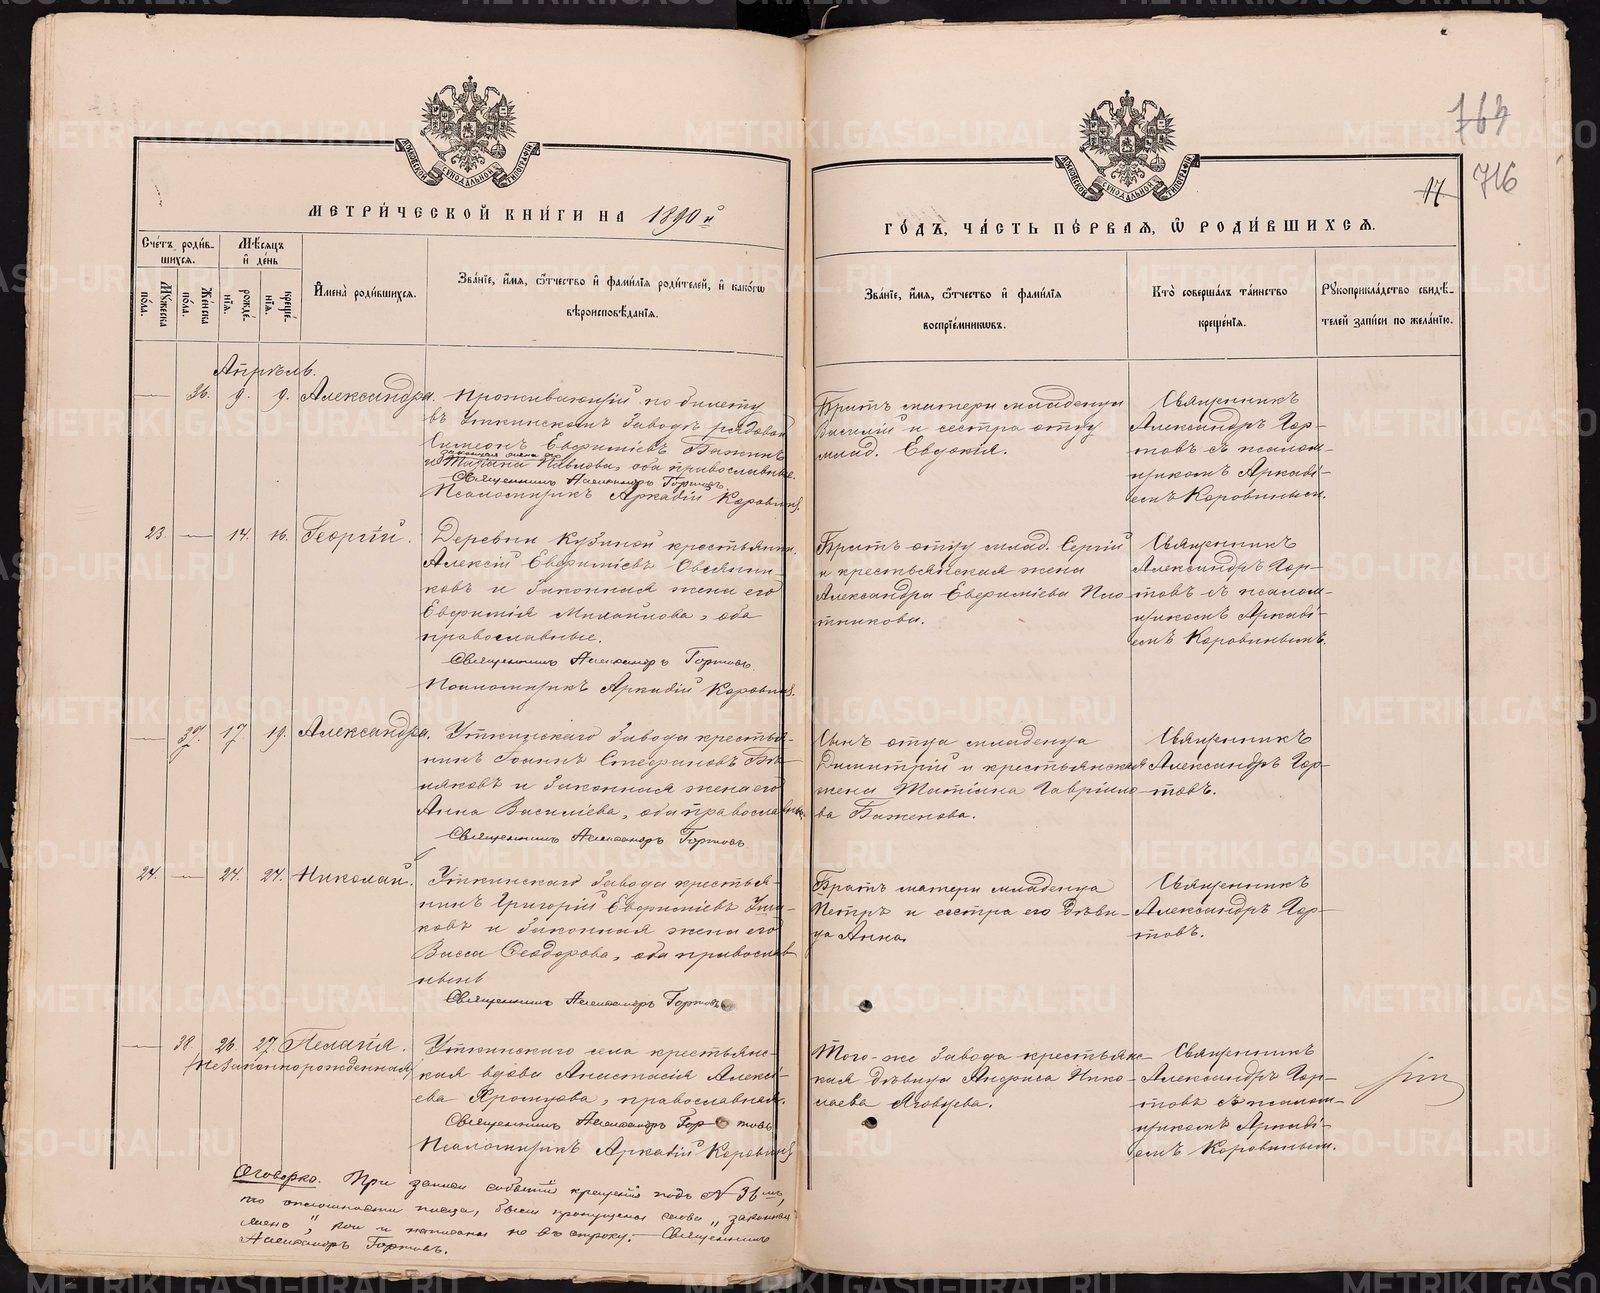 764
716
17
МЕТРИ́ЧЕСКОЙ КНИ́ГИ НА 1890й
ГО́ДЪ, ЧА́СТЬ ПЕ́РВАЯ, Ѡ РОДИ́ВШИХСЯ.
Сче́тъ роди́в-
шихся.
Мѣ́сяцъ
и҆ де́нь
Мꙋжеска пола.
Же́нска пола.
рожде́нїѧ.
креще́нїѧ.
И҆мена̀ роди́вшихся.
Зва́нїе, и҆́мѧ, ѻ҆́тчество и҆ фами́лїѧ роди́телей, и҆ како́гѡ
вѣроисповѣ́данїѧ.
Зва́нїе, и҆́мѧ, ѻ҆́тчество и҆ фами́лїѧ
воспрїе́мникѡвъ.
Кто̀ соверша́лъ та́инство
креще́нїѧ.
Рꙋкоприкла́дство свидѣ́-
телей за́писи по жела́нїю.
Апрѣль.
— 36. 9. 9. Александра.
Проживающій по билету
въ Уткинскомъ Заводѣ рядовой
Симеонъ Евфиміевъ Бажинъ
законная жена его
и Марина Павлова, оба православные.
Священникъ Александръ Гортовъ.
Псаломщикъ Аркадій Коровинъ.
Братъ матери младенца
Василій и сестра отцу
млад. Евдокія.
Священникъ
Александръ Гор-
товъ съ псалом-
щикомъ Аркаді-
емъ Коровинымъ.
23. — 14. 16. Георгій.
Деревни Кузиной крестьянинъ
Алексій Евфиміевъ Овсянни-
ковъ и законная жена его
Евфимія Михайлова, оба
православные.
Священникъ Александръ Гортовъ.
Псаломщикъ Аркадій Коровинъ.
Братъ отцу млад. Сергій
и крестьянская жена
Александра Евфиміева Пло-
тникова.
Священникъ
Александръ Гор-
товъ съ псалом-
щикомъ Аркаді-
емъ Коровинымъ.
— 37. 17. 19. Александра.
Уткинскаго Завода крестья-
нинъ Іоаннъ Стефановъ Бѣ-
ляковъ и законная жена его
Анна Василіева, оба православные.
Священникъ Александръ Гортовъ
Сынъ отца младенца
Димитрій и крестьянская
жена Татіана Гавріило-
ва Баженова.
Священникъ
Александръ Гор-
товъ.
24. — 24. 24. Николай.
Уткинскаго Завода крестья-
нинъ Григорій Евфиміевъ Уша-
ковъ и законная жена его
Васса Ѳеодорова, оба православ
ные
Священникъ Александръ Гортовъ
Братъ матери младенца
Петръ и сестра его дѣви-
ца Анна.
Священникъ
Александръ Гор-
товъ.
— 38. 26. 27. Пелагія.
(незаконнорожденная)
Уткинскаго села крестьянс-
кая вдова Анастасія Алексі-
ева Яромцова, православная.
Священникъ Александръ Гортовъ
Псаломщикъ Аркадій Коровинъ
Того-же Завода крестьянс-
кая дѣвица Анфиса Нико-
лаева Яговцева.
Священникъ
Александръ Гор-
товъ съ псалом-
щикомъ Аркаді-
емъ Коровинымъ.
Оговорка. При записи событія крещенія подъ № 36мъ,
по оплошности писца, были пропущены слова „законная
жена“, кои и написаны не въ строку. — Священникъ
Александръ Гортовъ.
METRIKI.GASO-URAL.RU